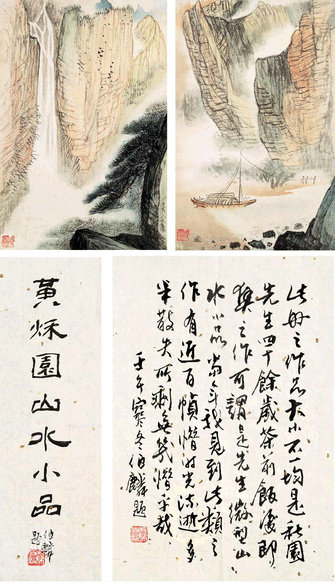 黃秌園山水小品
伯麟題
此册之作品大小不一均是秌園
先生四十餘歲茶前飯後即
興之作可謂是先生微型山
水小品當年我見到此類之
作有近百幀惜時光流逝多
半散失所剩無幾惜乎哉
壬午寒冬伯麟題